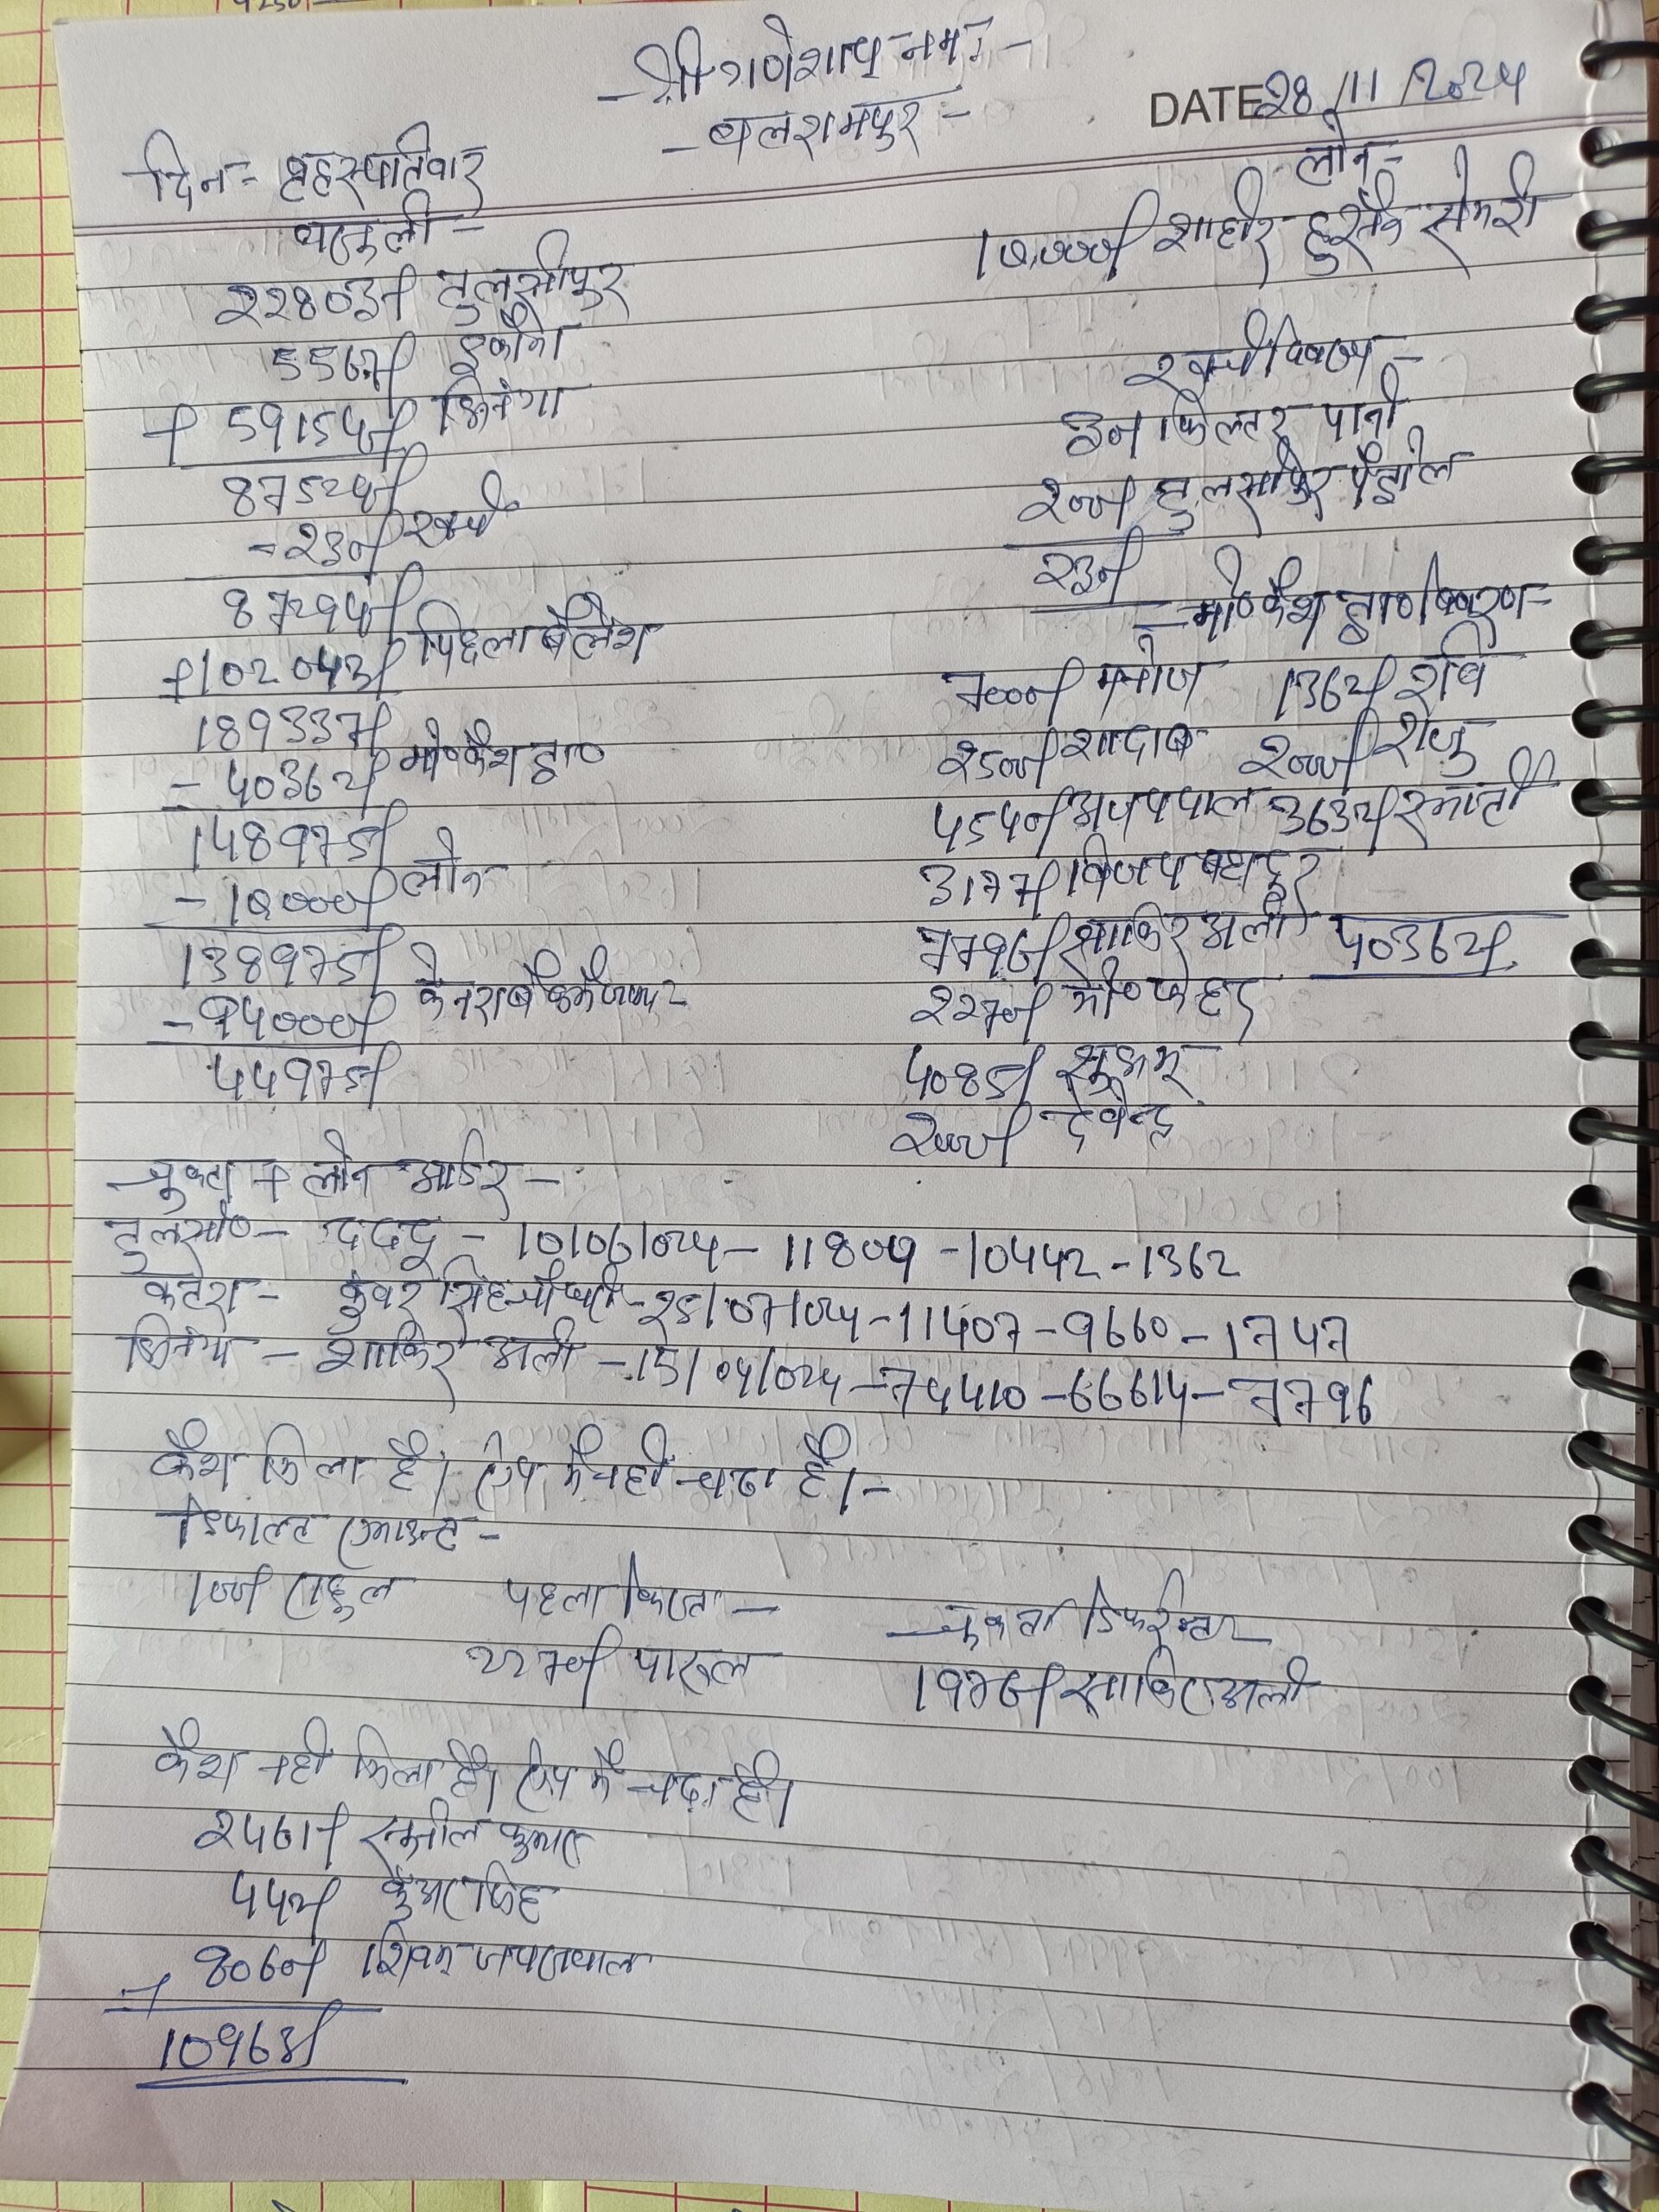 -श्री गणेशाय नमः-
-बलरामपुर-
DATE 28/11/2024
दिन- बृहस्पतिवार
वसूली-
22803/- तुलसीपुर
5567/- इकौना
+ 59154/- भिनगा
87524/-
-230/- खर्च
87294/-
+102043/- पिछला बैलेंश
189337/-
- 40362/- मो०कैश द्वा०
148975/-
- 10,000/- लोन
138975/-
- 94000/- केनरा बैंक में जमा
44975/-
लोन-
10,000/- शाहीर हुसैन सेमरी
खर्च विवरण-
30/- फिल्टर पानी
200/- तुलसीपुर पेट्रोल
230/-
-मो०कैश द्वा० विवरण-
7000/- मनोज 1362/- रवि
2500/- शादाब 2000/- राजू
4540/- अजयपाल 3632/-
3177/- विजय बहादुर
7796/- शाकिर अली 40362/-
2270/- मो०फहद
4085/-
2000/- देवेन्द्र
चुकता + लोन आर्डर-
तुलसी०- दददू - 10/06/024 - 11804 - 10442 - 1362
कटरा- कुंवर सिंह - 25/07/024 - 11407 - 9660 - 1747
भिनगा - शाकिर अली - 15/04/024 - 74410 - 66614 - 7796
कैश मिला है। ऐप में नही चढा है।-
डिफाल्ट एमाउन्ट-
100/- राहुल पहला किस्त-
2270/- पारुल
चुकता डिफरेन्स
1976/- साकिर अली
कैश नही मिला है। ऐप में चढा है।
2461/- सुनील कुमार
442/- कुंअर सिंह
+ 8060/- शिवम् जयसवाल
10963/-